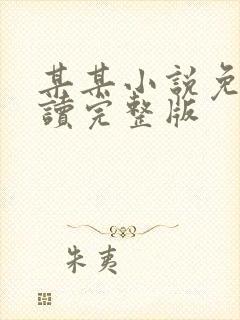 某某小説免
讀完整版
朱夷